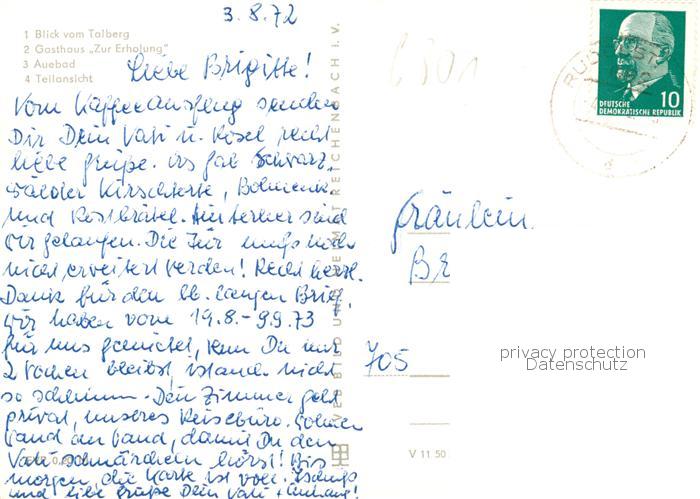 3.8.72
1 Blick vom Talberg
2 Gasthaus „Zur Erholung"
3 Auebad
4 Teilansicht
Liebe Brigitte!
Vom Kaffeeausflug senden
Dir Dein Vati u. Rosel recht
liebe Grüße. Es gab Schwarz-
wälder Kirschtorte, Bohnenk.
und Rostbrätel. Hinterher sind
wir gelaufen. Die Tür muß noch
nicht erweitert werden! Recht herzl.
Dank für den lb. langen Brief,
wir haben vom 19.8. - 9.9.73
für uns gemietet, wenn Du nur
2 Wochen bleibst, ist auch nicht
so schlimm. Dein Zimmer geht
privat, unseres Reisebüro. Wohnen
Wand an Wand, damit Du den
Vati schnarchen hörst! Bis
morgen, die Karte ist voll. Tschüß
und liebe Grüße Dein Vati + Anhang!
VEB BILD UND HEIMAT REICHENBACH I. V.
V 11 50
Fräulein
Br
705
privacy protection
Datenschutz
10
DEUTSCHE
DEMOKRATISCHE REPUBLIK